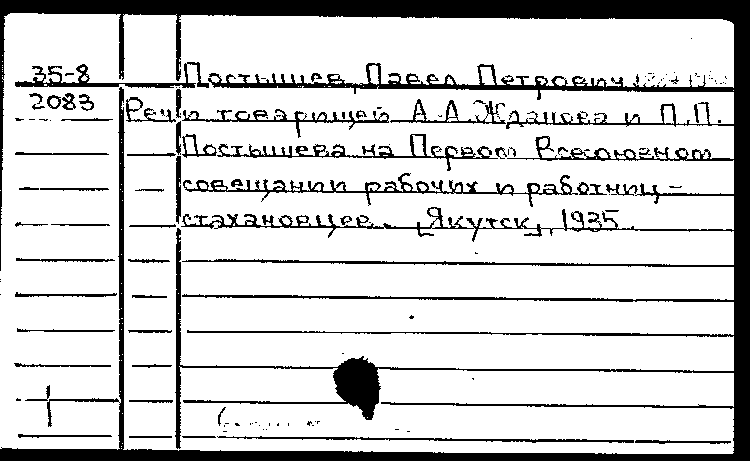 35-8 Постышев, Павел Петрович
2083 Речи товарищей А.А. Жданова и П.П.
Постышева на Первом Всесоюзном
совещании рабочих и работниц-
стахановцев. [Якутск], 1935.